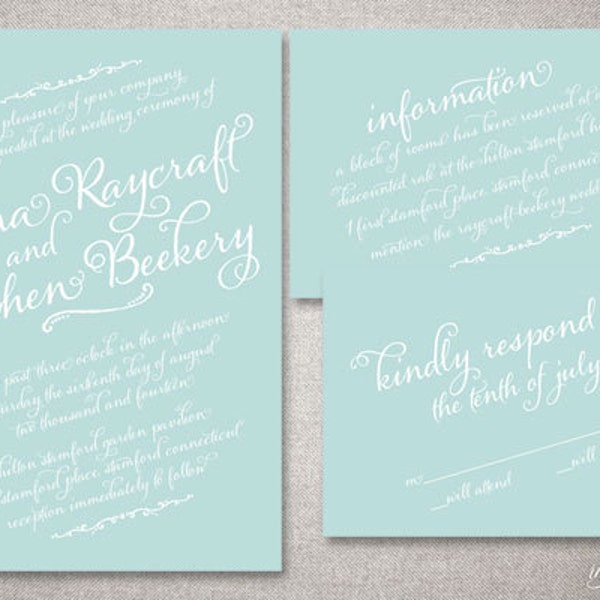 pleasure of your company
at the wedding ceremony of
Raycraft
and
Beekery
past three o'clock in the afternoon
the sixteenth day of august
two thousand and fourteen
hilton stamford garden pavilion
stamford place, stamford connecticut
reception immediately to follow
information
a block of rooms has been reserved at a
discounted rate at the hilton stamford
1 first stamford place, stamford
mention the raycraft-beekery
kindly respond
the tenth of july
m
will attend
will